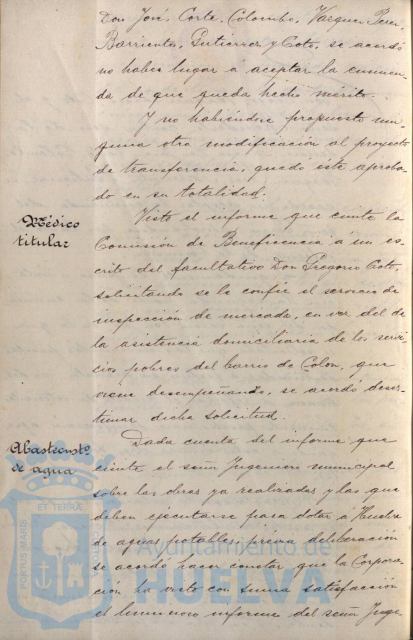 Don José, Corte, Colombo, Vazquez Perez,
Barrientos, Gutierrez y Coto, se acordó
no haber lugar á aceptar la enmien-
da de que queda hecho mérito.
Y no habiéndose propuesto nin-
guna otra modificación al proyecto
de transferencia, quedó éste aproba-
do en su totalidad.
Médico
titular
Visto el informe que emite la
Comisión de Beneficencia á un es-
crito del facultativo Don Gregorio Coto,
solicitando se le confie el servicio de
inspección de mercado, en vez del de
la asistencia domiciliaria de los
pobres del barrio de Colon, que
viene desempeñando, se acordó deses-
timar dicha solicitud.
Abastecimto.
de agua
Dada cuenta del informe que
emite el señor Ingeniero municipal
sobre las obras ya realizadas y las que
deben ejecutarse para dotar á Huelva
de aguas potables, prévia deliberación
se acordó hacer constar que la Corpora-
ción ha visto con suma satisfacción
el luminoso informe del señor Inge-
ET TERRÆ
PORTUS MARIS
Ayuntamiento de
HUELVA